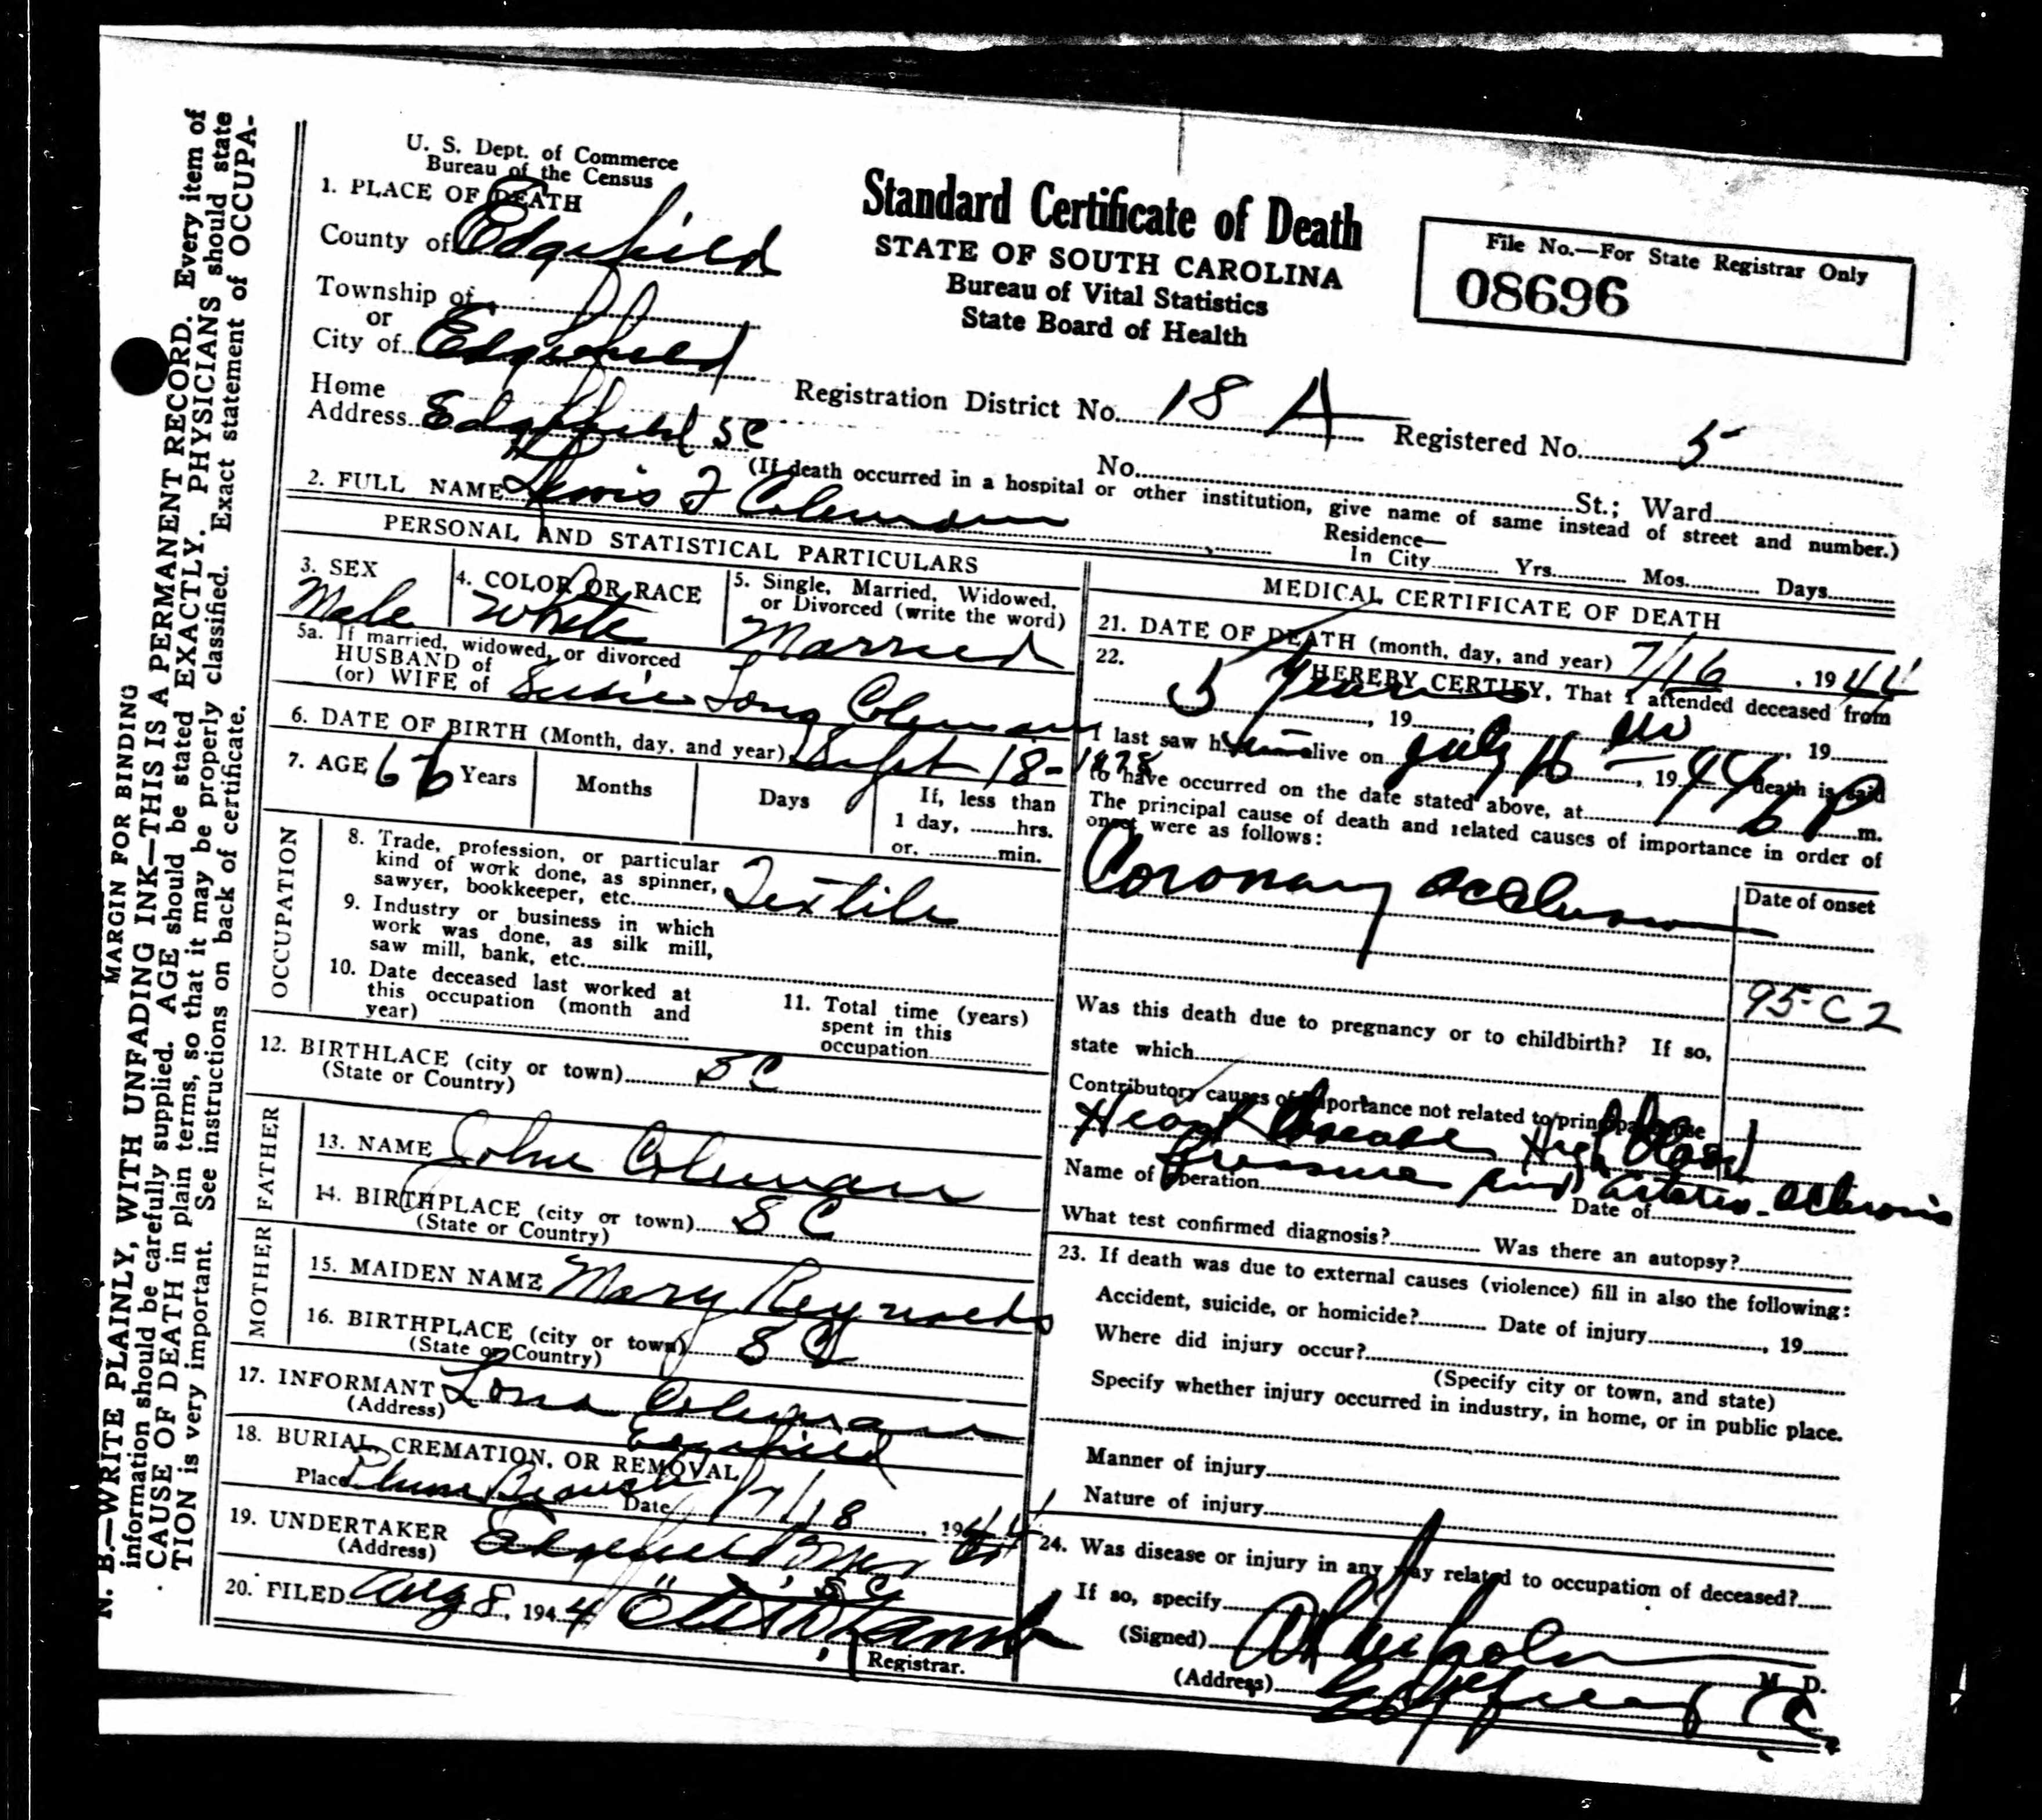 U. S. Dept. of Commerce
Bureau of the Census
1. PLACE OF DEATH
County of Edgefield
Township of
or
City of Edgefield
Home
Address Edgefield SC
Standard Certificate of Death
STATE OF SOUTH CAROLINA
Bureau of Vital Statistics
State Board of Health
File No.—For State Registrar Only
08696
Registration District No. 18 A
Registered No. 5
No. St.; Ward
(If death occurred in a hospital or other institution, give name of same instead of street and number.)
2. FULL NAME Lewis F Coleman
Residence—
In City Yrs. Mos. Days
PERSONAL AND STATISTICAL PARTICULARS
3. SEX
Male
4. COLOR OR RACE
White
5. Single, Married, Widowed,
or Divorced (write the word)
Married
5a. If married, widowed, or divorced
HUSBAND of
(or) WIFE of Susie Long Coleman
6. DATE OF BIRTH (Month, day, and year) Sept 18-1878
7. AGE 66 Years
Months
Days
If, less than
1 day, hrs.
or. min.
OCCUPATION
8. Trade, profession, or particular
kind of work done, as spinner,
sawyer, bookkeeper, etc. Textile
9. Industry or business in which
work was done, as silk mill,
saw mill, bank, etc.
10. Date deceased last worked at
this occupation (month and
year)
11. Total time (years)
spent in this
occupation
12. BIRTHLACE (city or town) SC
(State or Country)
FATHER
13. NAME John Coleman
14. BIRTHPLACE (city or town) SC
(State or Country)
MOTHER
15. MAIDEN NAME Mary Reynolds
16. BIRTHPLACE (city or town) SC
(State or Country)
17. INFORMANT Coleman
(Address) Edgefield
18. BURIAL, CREMATION, OR REMOVAL
Place Plum Branch Date 7/18, 1944
19. UNDERTAKER Edgefield
(Address) " , SC
20. FILED Aug 8, 1944
Registrar.
MEDICAL CERTIFICATE OF DEATH
21. DATE OF DEATH (month, day, and year) 7/16, 1944
22. I HEREBY CERTIFY, That I attended deceased from
5 years, 19 , 19
I last saw h alive on July 16, 1944 death is said
to have occurred on the date stated above, at 6 P m.
The principal cause of death and related causes of importance in order of
onset were as follows:
Coronary occlusion
Date of onset
95-C2
Was this death due to pregnancy or to childbirth? If so,
state which
Contributory causes of importance not related to principal cause
Heart Disease High Blood
Pressure and arterio-sclerosis
Name of operation Date of
What test confirmed diagnosis? Was there an autopsy?
23. If death was due to external causes (violence) fill in also the following:
Accident, suicide, or homicide? Date of injury , 19
Where did injury occur?
(Specify city or town, and state)
Specify whether injury occurred in industry, in home, or in public place.
Manner of injury
Nature of injury
24. Was disease or injury in any way related to occupation of deceased?
If so, specify
(Signed) M. D.
(Address) Edgefield SC
MARGIN FOR BINDING
N. B.—WRITE PLAINLY, WITH UNFADING INK—THIS IS A PERMANENT RECORD. Every item of
information should be carefully supplied. AGE should be stated EXACTLY. PHYSICIANS should state
CAUSE OF DEATH in plain terms, so that it may be properly classified. Exact statement of OCCUPA-
TION is very important. See instructions on back of certificate.